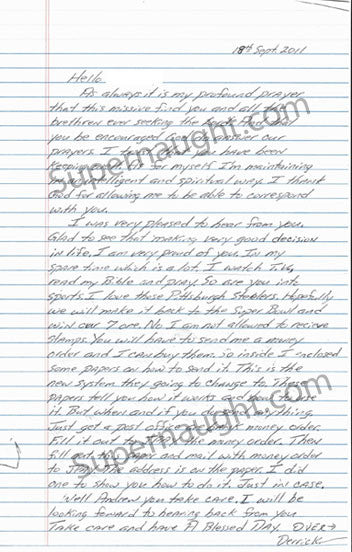 18th Sept. 2011
Hello.
As always it is my profound prayer
that this missive find you and all
brethren ever seeking the
you be encouraged God do answer our
prayers. I trust that you have been
keeping for myself I'm maintaining
intelligent and spiritual way. I thank
God for allowing me to be able to correspond
with you.
I was very pleased to hear from you.
Glad to see that making very good decision
in life. I am very proud of you. In my
spare time which is a lot. I watch T.V.,
read my Bible and pray. So are you into
sports. I love those Pittsburgh Steelers. Hopefully
we will make it back to the Super Bowl and
win our 7 one. No I am not allowed to recieve
stamps. You will have to send me a money
order and I can buy them. So inside I inclosed
some papers on how to send it. This is the
new system they going to change to. These
papers tell you how it works and how to use
it. But when and if you anything.
Just get a post office money order.
Fill it out the money order. Then
fill out paper and mail with money order
to JPay. The address is on the paper. I did
one to show you how to do it. Just in case.
Well Andrew you take care. I will be
looking foward to hearing back from you
Take care and have A Blessed Day. OVER→
Derrick
Supernaught.com
Supernaught.com
Supernaught.com